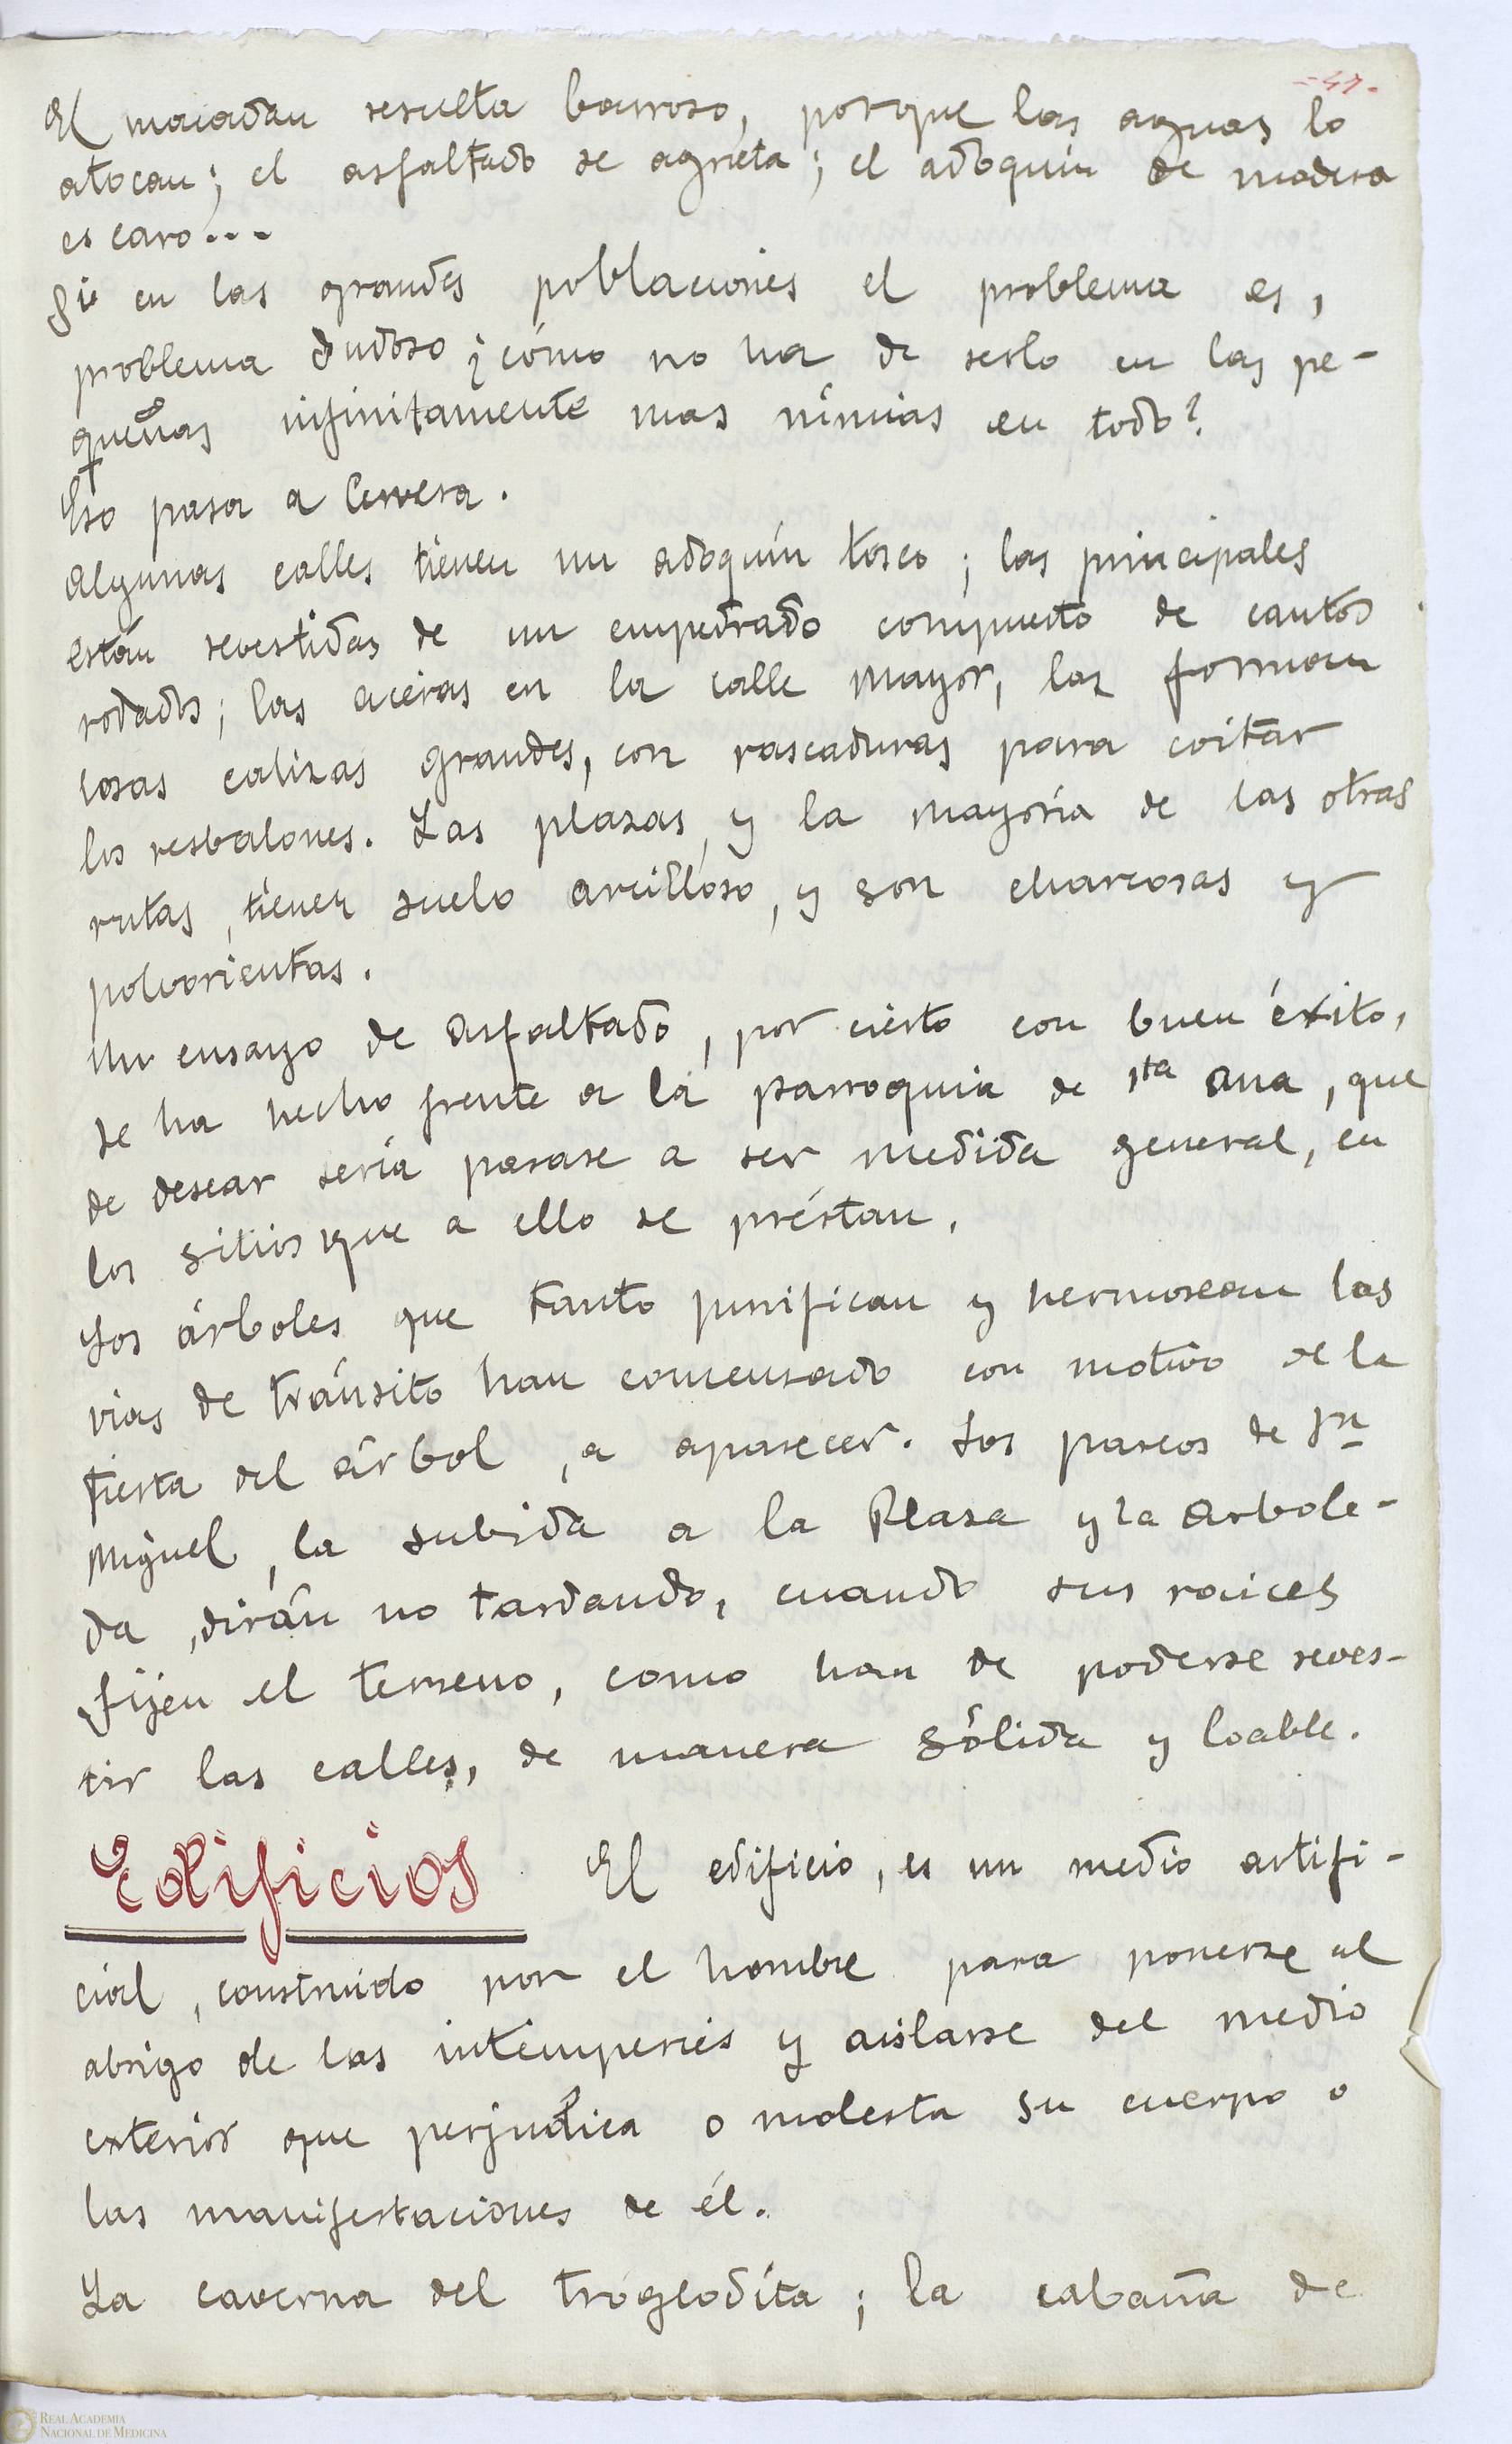 =47.
El macadan resulta barroso, porque las aguas lo
atocan; el asfaltado se agrieta; el adoquin de madera
es caro...
Si en las grandes poblaciones el problema es,
problema dudoso ¿cómo no ha de serlo en las pe-
queñas infinitamente mas nímias en todo?
Eso pasa a Cervera.
Algunas calles tienen un adoquín tosco; las principales
están revestidas de un empedrado compuesto de cantos
rodados; las aceras en la calle Mayor, las forman
losas calizas grandes, con rascaduras para evitar
los resbalones. Las plazas, y la mayoría de las otras
rutas, tienen suelo arcilloso, y son charcosas y
polvorientas.
Un ensayo de asfaltado, por cierto con buen éxito,
se ha hecho frente a la parroquia de Sta Ana, que
de desear sería pasase a ser medida general, en
los sitios que a ello se préstan.
Los árboles que tanto purifican y hermosean las
vias de tránsito han comenzado con motivo de la
fiesta del árbol, a aparecer. Los paseos de Sn
Miguel, la subida a la Plaza y la Arbole-
da, dirán no tardando, cuando sus raices
fijen el terreno, como han de poderse reves-
tir las calles, de manera sólida y loable.
Edificios El edificio, es un medio artifi-
cial, construido por el hombre para ponerse al
abrigo de las intemperies y aislarse del medio
exterior que perjudica o molesta su cuerpo o
las manifestaciones de él.
La caverna del troglodita; la cabaña de
REAL ACADEMIA
NACIONAL DE MEDICINA